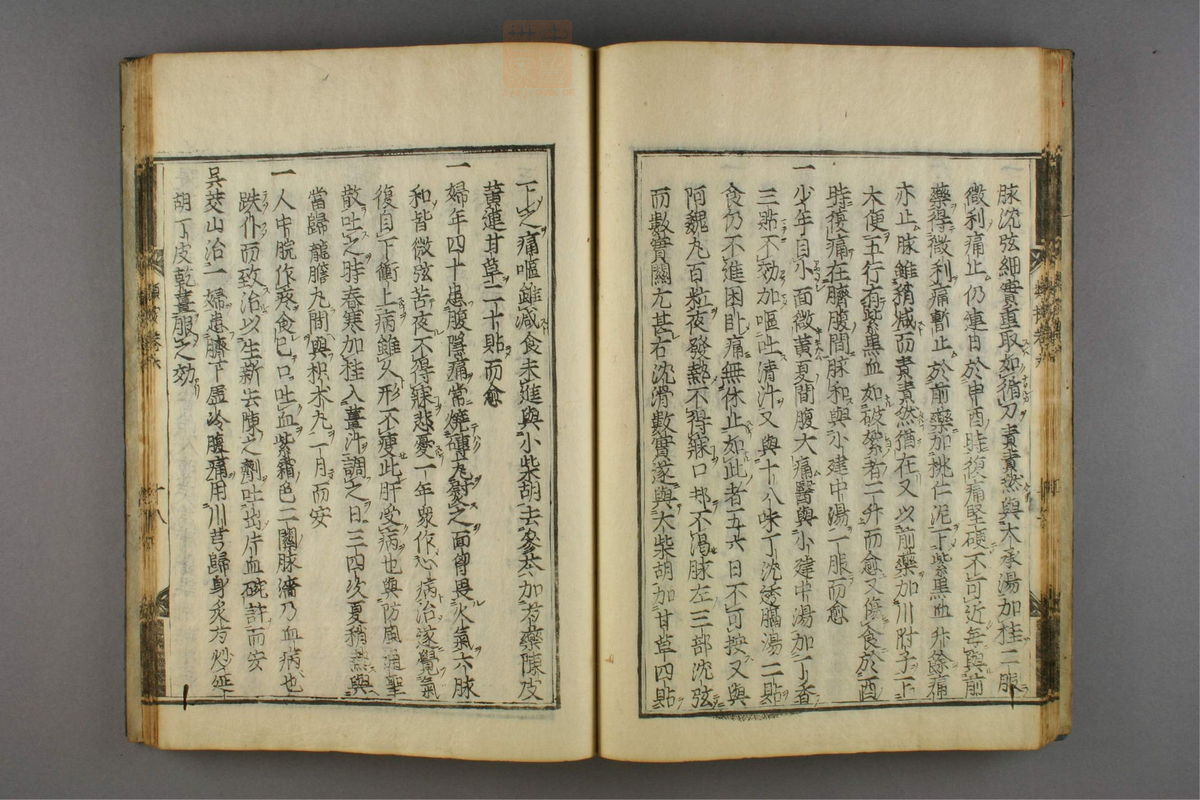 脉沈弦細實重取如循刀責責然與大承湯加桂二服
微利痛止仍連日於申酉時復痛堅硬不可近每與前
藥得微利痛暫止於前藥加桃仁泥下紫黑血升餘痛
亦止脉雖稍减而責責然猶在又以前藥加川附子下
大便五行有紫黒血如破絮者二升而愈又傷食於酉
時復痛在臍腹間脉和與小建中湯一服而愈
一少年自小面微黄夏間腹大痛醫與小建中湯加丁香
三貼不効加嘔吐清汁又與十八味丁沈透膈湯二貼
食仍不進困臥痛無休止如此者五六日不可按又與
阿魏丸百粒夜發熱不得寐口却不渴脉左三部沈弦
而數實關尤甚右沈滑數實遂與大柴胡加甘草四貼
下之痛嘔雖减食未進與小柴胡去參芩加芍藥陳皮
黄連甘草二十貼而愈
一婦年四十患腹隱痛常燒磚瓦熨之面胷畏火氣六脉
和皆微弦苦夜不得寐悲憂一年衆作心病治遂覺氣
復自下衝上病雖久形不瘦此肝受病也與防風通聖
散吐之時春寒加桂入薑汁調之日三四次夏稍熱與
當歸龍膽丸間與枳朮丸一月而安
一人中脘作疼食已口吐血紫霜色二關脉濇乃血病也
跌仆而致治以生新去陳之劑吐出片血碗許而安
吳茭山治一婦患臍下虛冷腹痛用川芎歸身炙芍炒延
胡丁皮乾薑服之効
十八